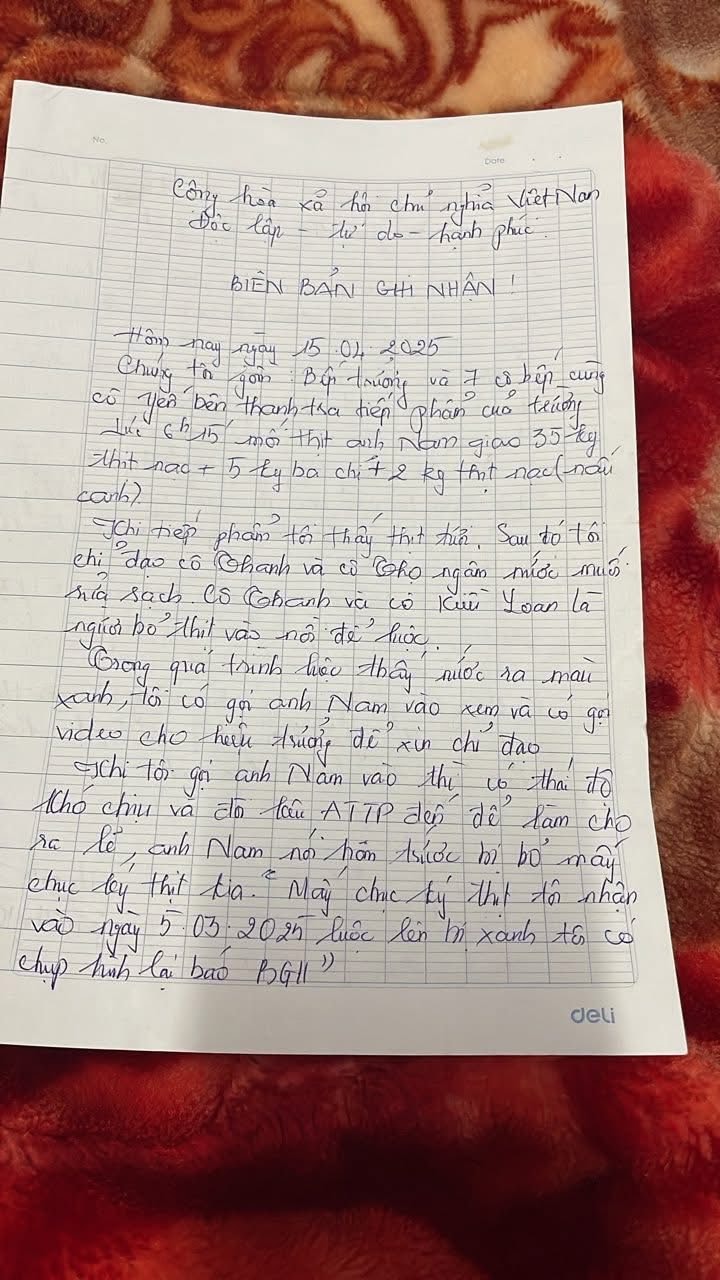 No.
Date
Cộng hòa xã hội chủ nghĩa Việt Nam
Độc lập - tự do - hạnh phúc.
BIÊN BẢN GHI NHẬN !
Hôm nay ngày 15.04.2025
Chúng tôi gồm: Bếp trưởng và 7 cô bếp cùng
cô Yến bên thanh tra tiếp phẩm của trường
Lúc 6h15 mối thịt anh Nam giao 35 kg
thịt nạc + 5 ký ba chỉ + 2 kg thịt nạc (nấu
canh).
Khi tiếp phẩm tôi thấy thịt tươi. Sau đó tôi
chỉ đạo cô Thanh và cô Thơ ngâm nước muối
rửa sạch. Cô Thanh và cô Kiều Loan là
người bỏ thịt vào nồi để luộc.
Trong quá trình luộc thấy nước ra màu
xanh, tôi có gọi anh Nam vào xem và có gọi
video cho hiệu trưởng để xin chỉ đạo
Khi tôi gọi anh Nam vào thì có thái độ
khó chịu và đòi kêu ATTP đến để làm cho
ra lẽ, anh Nam nói hôm trước bị bỏ mấy
chục ký thịt kia. " Mấy chục ký thịt tôi nhận
vào ngày 5.03.2025 luộc lên bị xanh tôi có
chụp hình lại báo BGH ")
deli